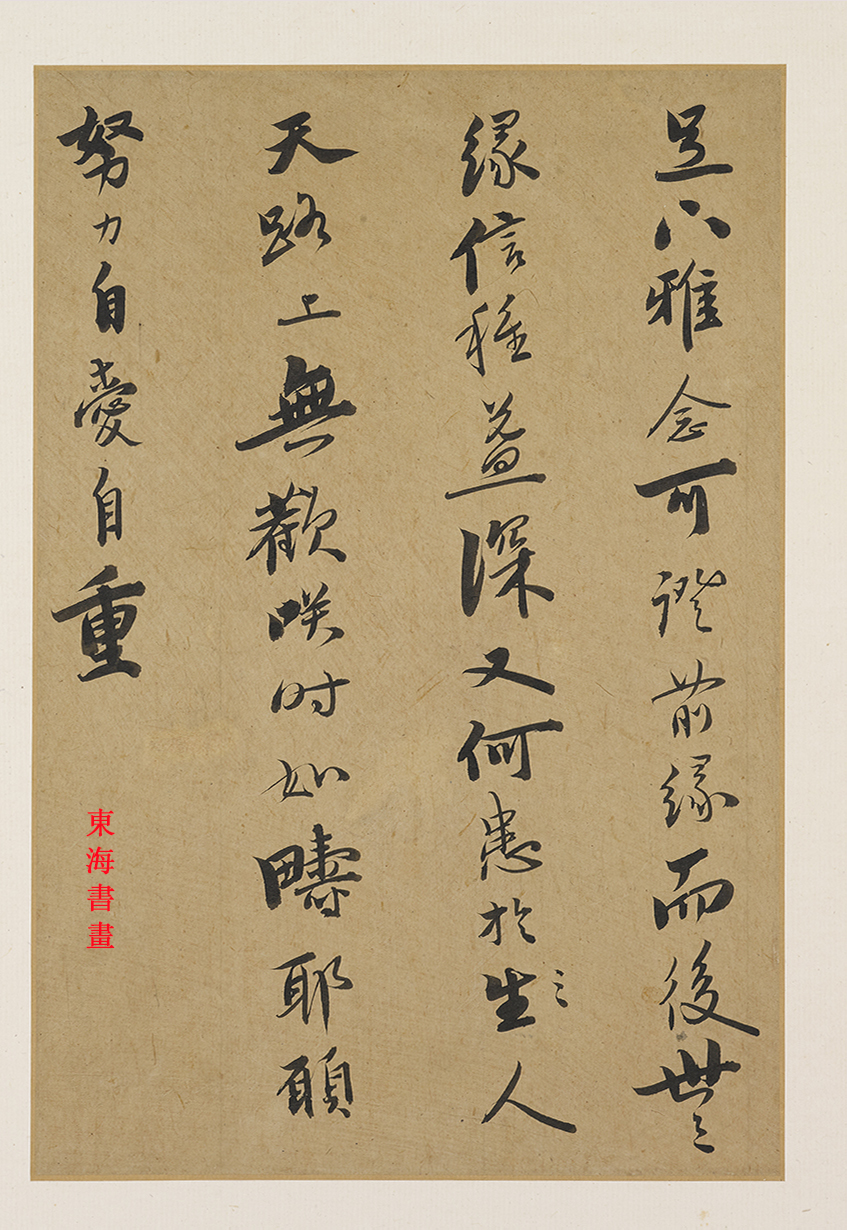 足下雅念可證前緣而後世〻
緣信種益深又何患於生〻人
天路上無歡咲時如疇耶願
努力自愛自重
東海書畫